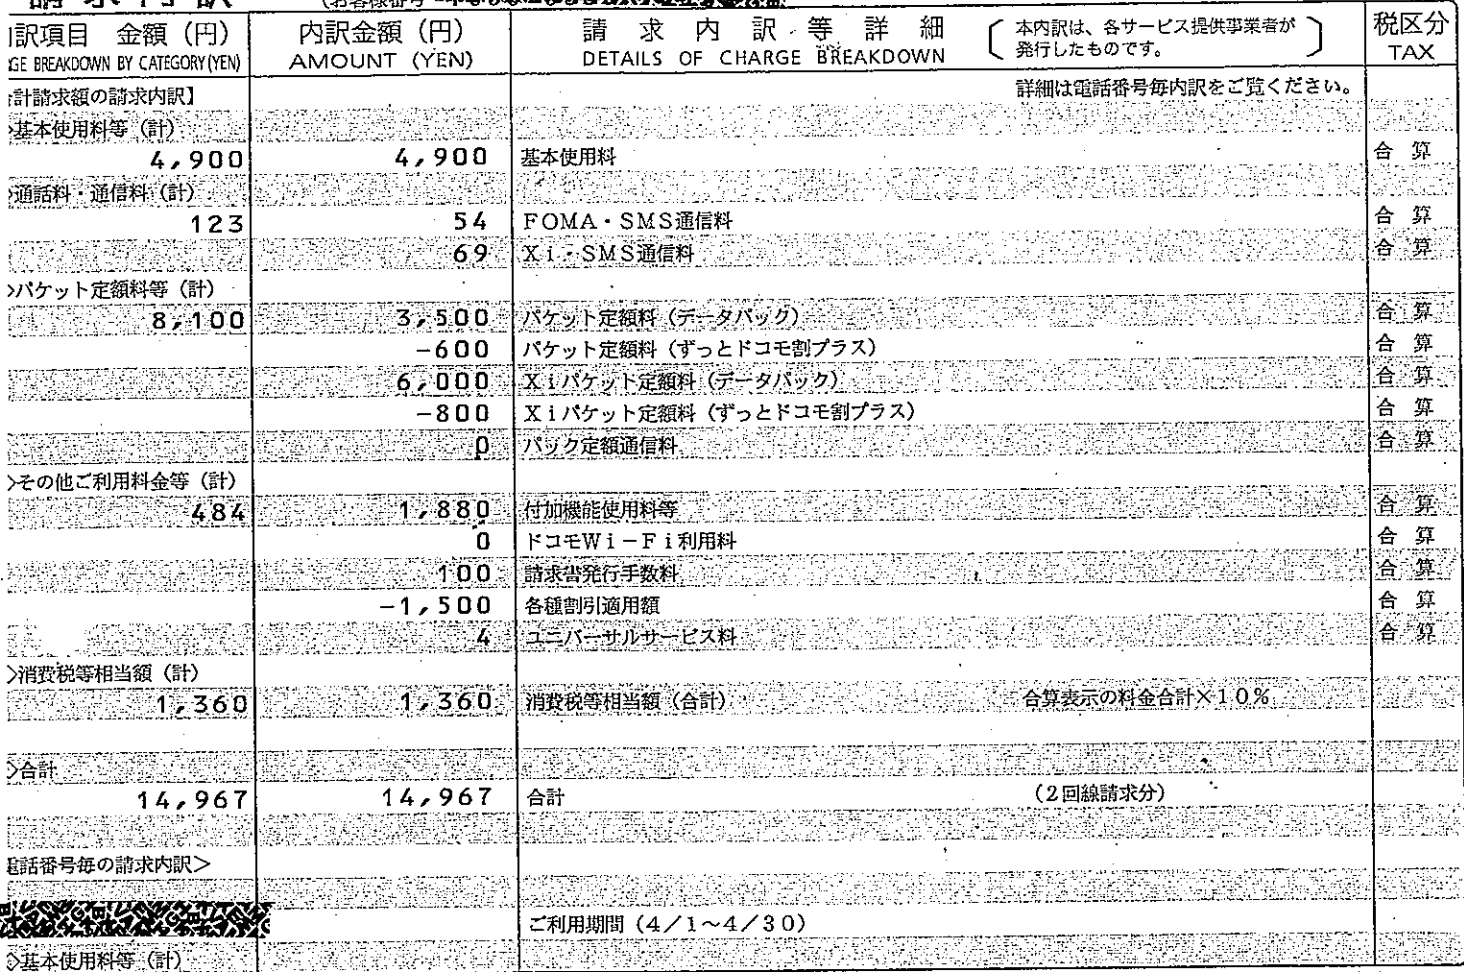 請求内訳
(お客様番号
訳項目 金額 (円) 内訳金額 (円) 請求内訳等詳細 本内訳は、各サービス提供事業者が発行したものです。 税区分
GE BREAKDOWN BY CATEGORY(YEN) AMOUNT (YEN) DETAILS OF CHARGE BREAKDOWN TAX
計請求額の請求内訳】 詳細は電話番号毎内訳をご覧ください。
>基本使用料等 (計)
4,900 4,900 基本使用料 合 算
>通話料・通信料 (計)
123 54 FOMA・SMS通信料 合 算
69 Xi・SMS通信料 合 算
>パケット定額料等 (計)
8,100 3,500 パケット定額料 (データパック) 合 算
-600 パケット定額料 (ずっとドコモ割プラス) 合 算
6,000 Xiパケット定額料 (データパック) 合 算
-800 Xiパケット定額料 (ずっとドコモ割プラス) 合 算
0 パック定額通信料 合 算
>その他ご利用料金等 (計)
484 1,880 付加機能使用料等 合 算
0 ドコモWi-Fi利用料 合 算
100 請求書発行手数料 合 算
-1,500 各種割引適用額 合 算
4 ユニバーサルサービス料 合 算
>消費税等相当額 (計)
1,360 1,360 消費税等相当額 (合計) 合算表示の料金合計×10%
>合計
14,967 14,967 合計 (2回線請求分)
電話番号毎の請求内訳>
ご利用期間 (4/1~4/30)
>基本使用料等 (計)